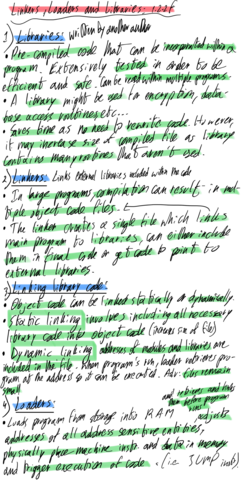 Linkers, Loaders and Libraries 1.2.2 f
1) Libraries written by another author
• Pre-compiled code that can be incorporated within a
program. Extensively tested in order to be
efficient and safe. Can be used within multiple programs.
• A library might be used for encryption, data-
base access routines etc...
• Saves time as no need to rewrite code. However,
it may increase size of compiled file as library
contains many routines that aren't used.
2) Linkers Links external libraries included within the code
• In large programs compilation can result in mul
tiple object code files.
• The linker creates a single file which links
main program to libraries, can either include
them in final code or get code to point to
external libraries.
3) Linking library code
• Object code can be linked statically or dynamically
• Static linking involves including all necessary
library code into object code (increases size of file)
• Dynamic linking addresses of modules and libraries are
included in the file. When program's run, loader retrieves pro-
gram at the address so it can be executed. Adv: EXE remain
small
4) Loaders: and retrieves and links
them before program
runs
• Loads program from storage into RAM adjusts
addresses of all address sensitive entities,
physically place machine instr. and data in memory
and trigger execution of code. (i.e JUMP instr)